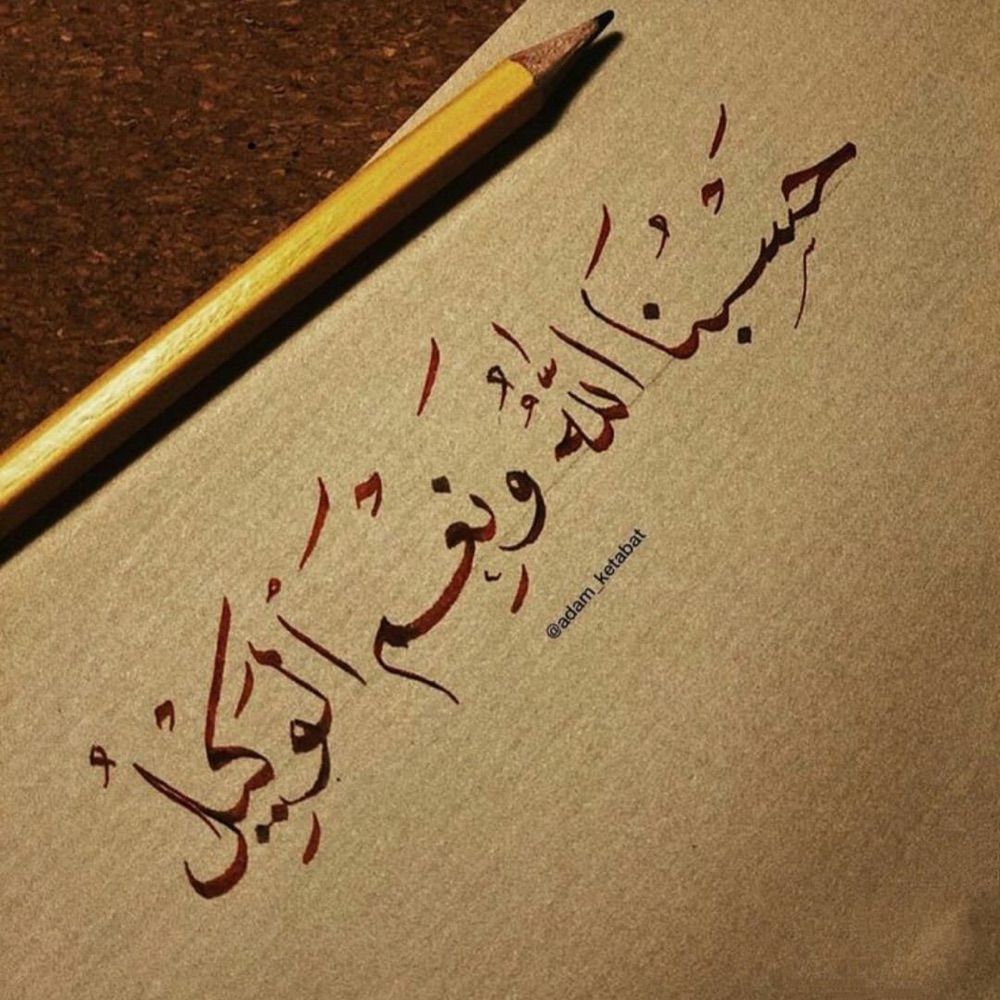 حَسْبُنَا اللَّهُ وَنِعْمَ الْوَكِيلُ
@adam_ketabat